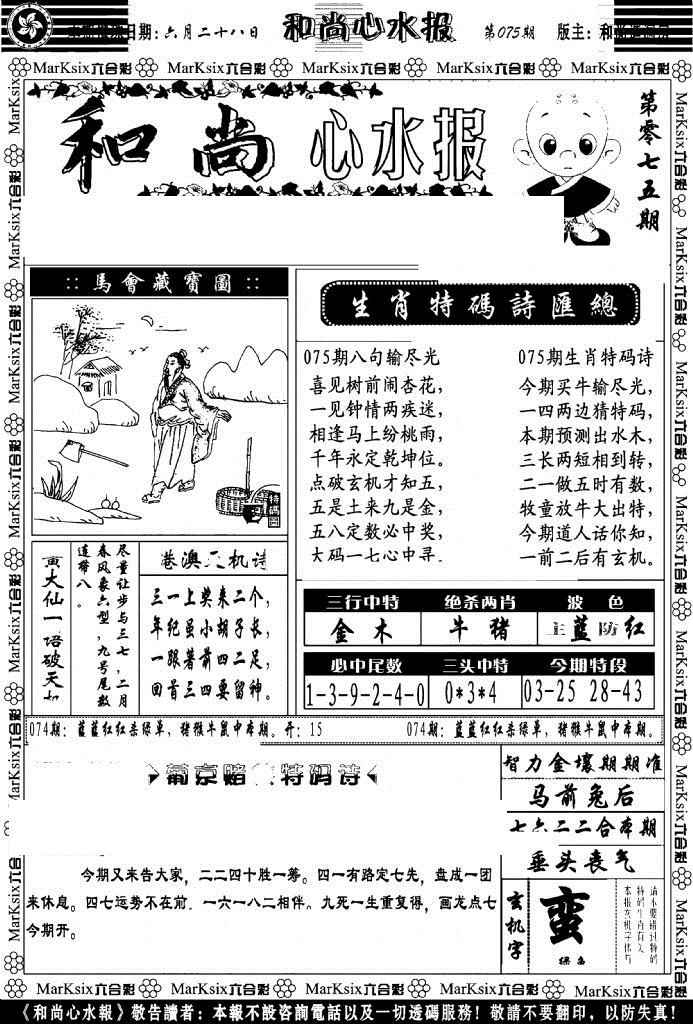 日期:六月二十八日
和尚心水报
第075期
版主:和
MarKsix六合彩 MarKsix六合彩 MarKsix六合彩 MarKsix六合彩 MarKsix六合彩
和尚心水报
第零七五期
::馬會藏寶圖::
生肖特碼詩匯總
075期八句输尽光
喜见树前闹杏花,
一见钟情两疾迷,
相逢马上纷桃雨,
千年永定乾坤位。
点破玄机才知五,
五是土来九是金,
五八定数必中奖,
大码一七心中寻
075期生肖特码诗
今期买牛输尽光,
一四两边猜特码,
本期预测出水木,
三长两短相到转,
二一做五时有数,
牧童放牛大出特,
今期道人话你知,
一前二后有玄机。
大仙一语破天
尽量让步与三七,二月
春风表六型,九号尾数
连带八。
港澳天机诗
三一上奖来二个,
年纪虽小胡子长,
一眼着前四二足,
回首三四要留神。
三行中特 绝杀两肖 波 色
金木 牛猪 蓝 红
必中尾数 三头中特 今期特段
1-3-9-2-4-0 0*3*4 03-25 28-43
074期:蓝蓝红红杀绿单,猪猴牛鼠中本期。开:15
074期:蓝蓝红红杀绿单,猪猴牛鼠中本期。
葡京赌 特码诗
今期又来告大家,二二四十胜一筹。四一有路定七先,盘成一团
来休息。四七运势不在前 一六一八二相伴。九死一生重复得,画龙点七
今期开。
智力金壤期期准
马前兔后
七六二二合本期
垂头丧气
玄机字
蛮
绿
MarKsix六合彩 MarKsix六合彩 MarKsix六合彩 MarKsix六合彩 MarKsix六合彩
《和尚心水報》敬告讀者:本報不設咨詢電話以及一切透碼服務!敬請不要翻印,以防失真!